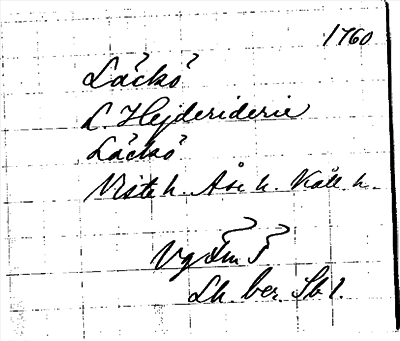 1760
Läckö
L. Hejderiderie
Läckö
Viste h. Åse h. Kåll. h.
Vg Fm 5
Lh. ber. Sb 1.